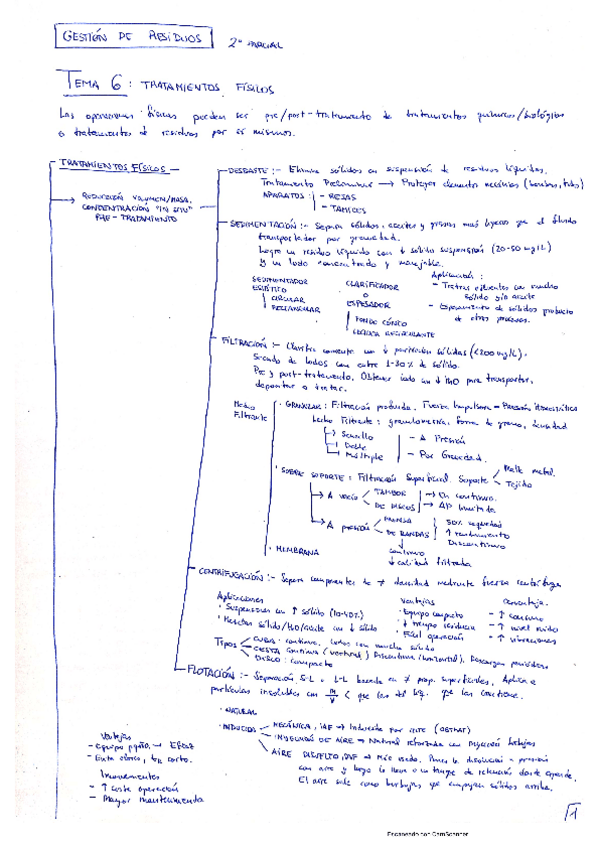 GESTIÓN DE RESIDUOS 2º PARCIAL
TEMA 6: TRATAMIENTOS FÍSICOS
Las operaciones físicas pueden ser pre/post-tratamiento de tratamientos químicos/biológicos
o tratamientos de residuos por sí mismos.
TRATAMIENTOS FÍSICOS
→ REDUCCIÓN VOLUMEN/MASA.
CONCENTRACIÓN "IN SITU"
PRE-TRATAMIENTO
DESBASTE :- Elimina sólidos en suspensión de residuos líquidos.
Tratamiento Preliminar → Proteger elementos mecánicos (bombas, tubos)
APARATOS : - REJAS
- TAMICES
SEDIMENTACIÓN :- Separa sólidos, aceites y grasas más ligeros que el fluido
transportador por gravedad.
Logra un residuo líquido con ↓ sólido suspensión (20-50 mg/L)
y un lodo concentrado y manejable.
SEDIMENTADOR
ESTÁTICO
CIRCULAR
RECTANGULAR
CLARIFICADOR
O
ESPESADOR
FONDO CÓNICO
Aplicación :
- Tratar efluentes con mucho
sólido y/o aceite
- Espesamiento de sólidos producto
de otros procesos.
FILTRACIÓN :- Clarifica corriente con ↓ partículas sólidas (<200 mg/L).
Secado de lodos con entre 1-30% de sólido.
Pre y post-tratamiento. Obtener lodo con ↓ H2O para transportar,
depositar o tratar.
Medio
Filtrante
· GRANULAR : Filtración profunda. Fuerza Impulsora = Presión Hidrostática
Lecho Filtrante : granulometría, forma de grano, densidad
→ Sencillo
→ Doble
→ Múltiple
- A Presión
- Por Gravedad.
· SOBRE SOPORTE : Filtración Superficial. Soporte
Malla metal.
Tejido
→ A vacío
TAMBOR
DE DISCOS
→ En continuo.
→ ΔP limitada.
→ A presión
PRENSA
DE BANDAS
50% sequedad
↑ rendimiento
Discontinuo
continuo
↓ calidad filtrada
· MEMBRANA
CENTRIFUGACIÓN :- Separa componentes de ≠ densidad mediante fuerza centrífuga
Aplicaciones
· Suspensiones con ↑ sólido (10-40%)
· Mezclas sólido/H2O/aceite con ↓ sólido
Ventajas
· Equipo compacto
· ↓ tiempo residencia
· Fácil operación
Desventaja.
- ↑ consumo
- ↑ nivel ruido
- ↑ vibraciones
Tipos
CUBA : continua, lodos con mucho sólido
CESTA Continua (vertical) Discontinua (horizontal). Descargas periódicas
DISCO : compacto
FLOTACIÓN :- Separación S-L o L-L basada en ≠ prop. superficiales. Aplica a
partículas insolubles con m/V < que las del líq. que las contiene.
· NATURAL
· INDUCIDA
MECÁNICA, IAF → Inducida por aire
INYECCIÓN DE AIRE → Natural reforzada con inyección burbujas
AIRE DISUELTO, DAF → Más usado. Pones la disolución a presión
con aire y luego la llevo a un tanque de retención donde expande.
El aire sale como burbujas que empujan sólidos arriba.
Ventajas
- Equipo pqño.
- corto.
Inconvenientes
- ↑ coste operación
- Mayor mantenimiento
1
Escaneado con CamScanner